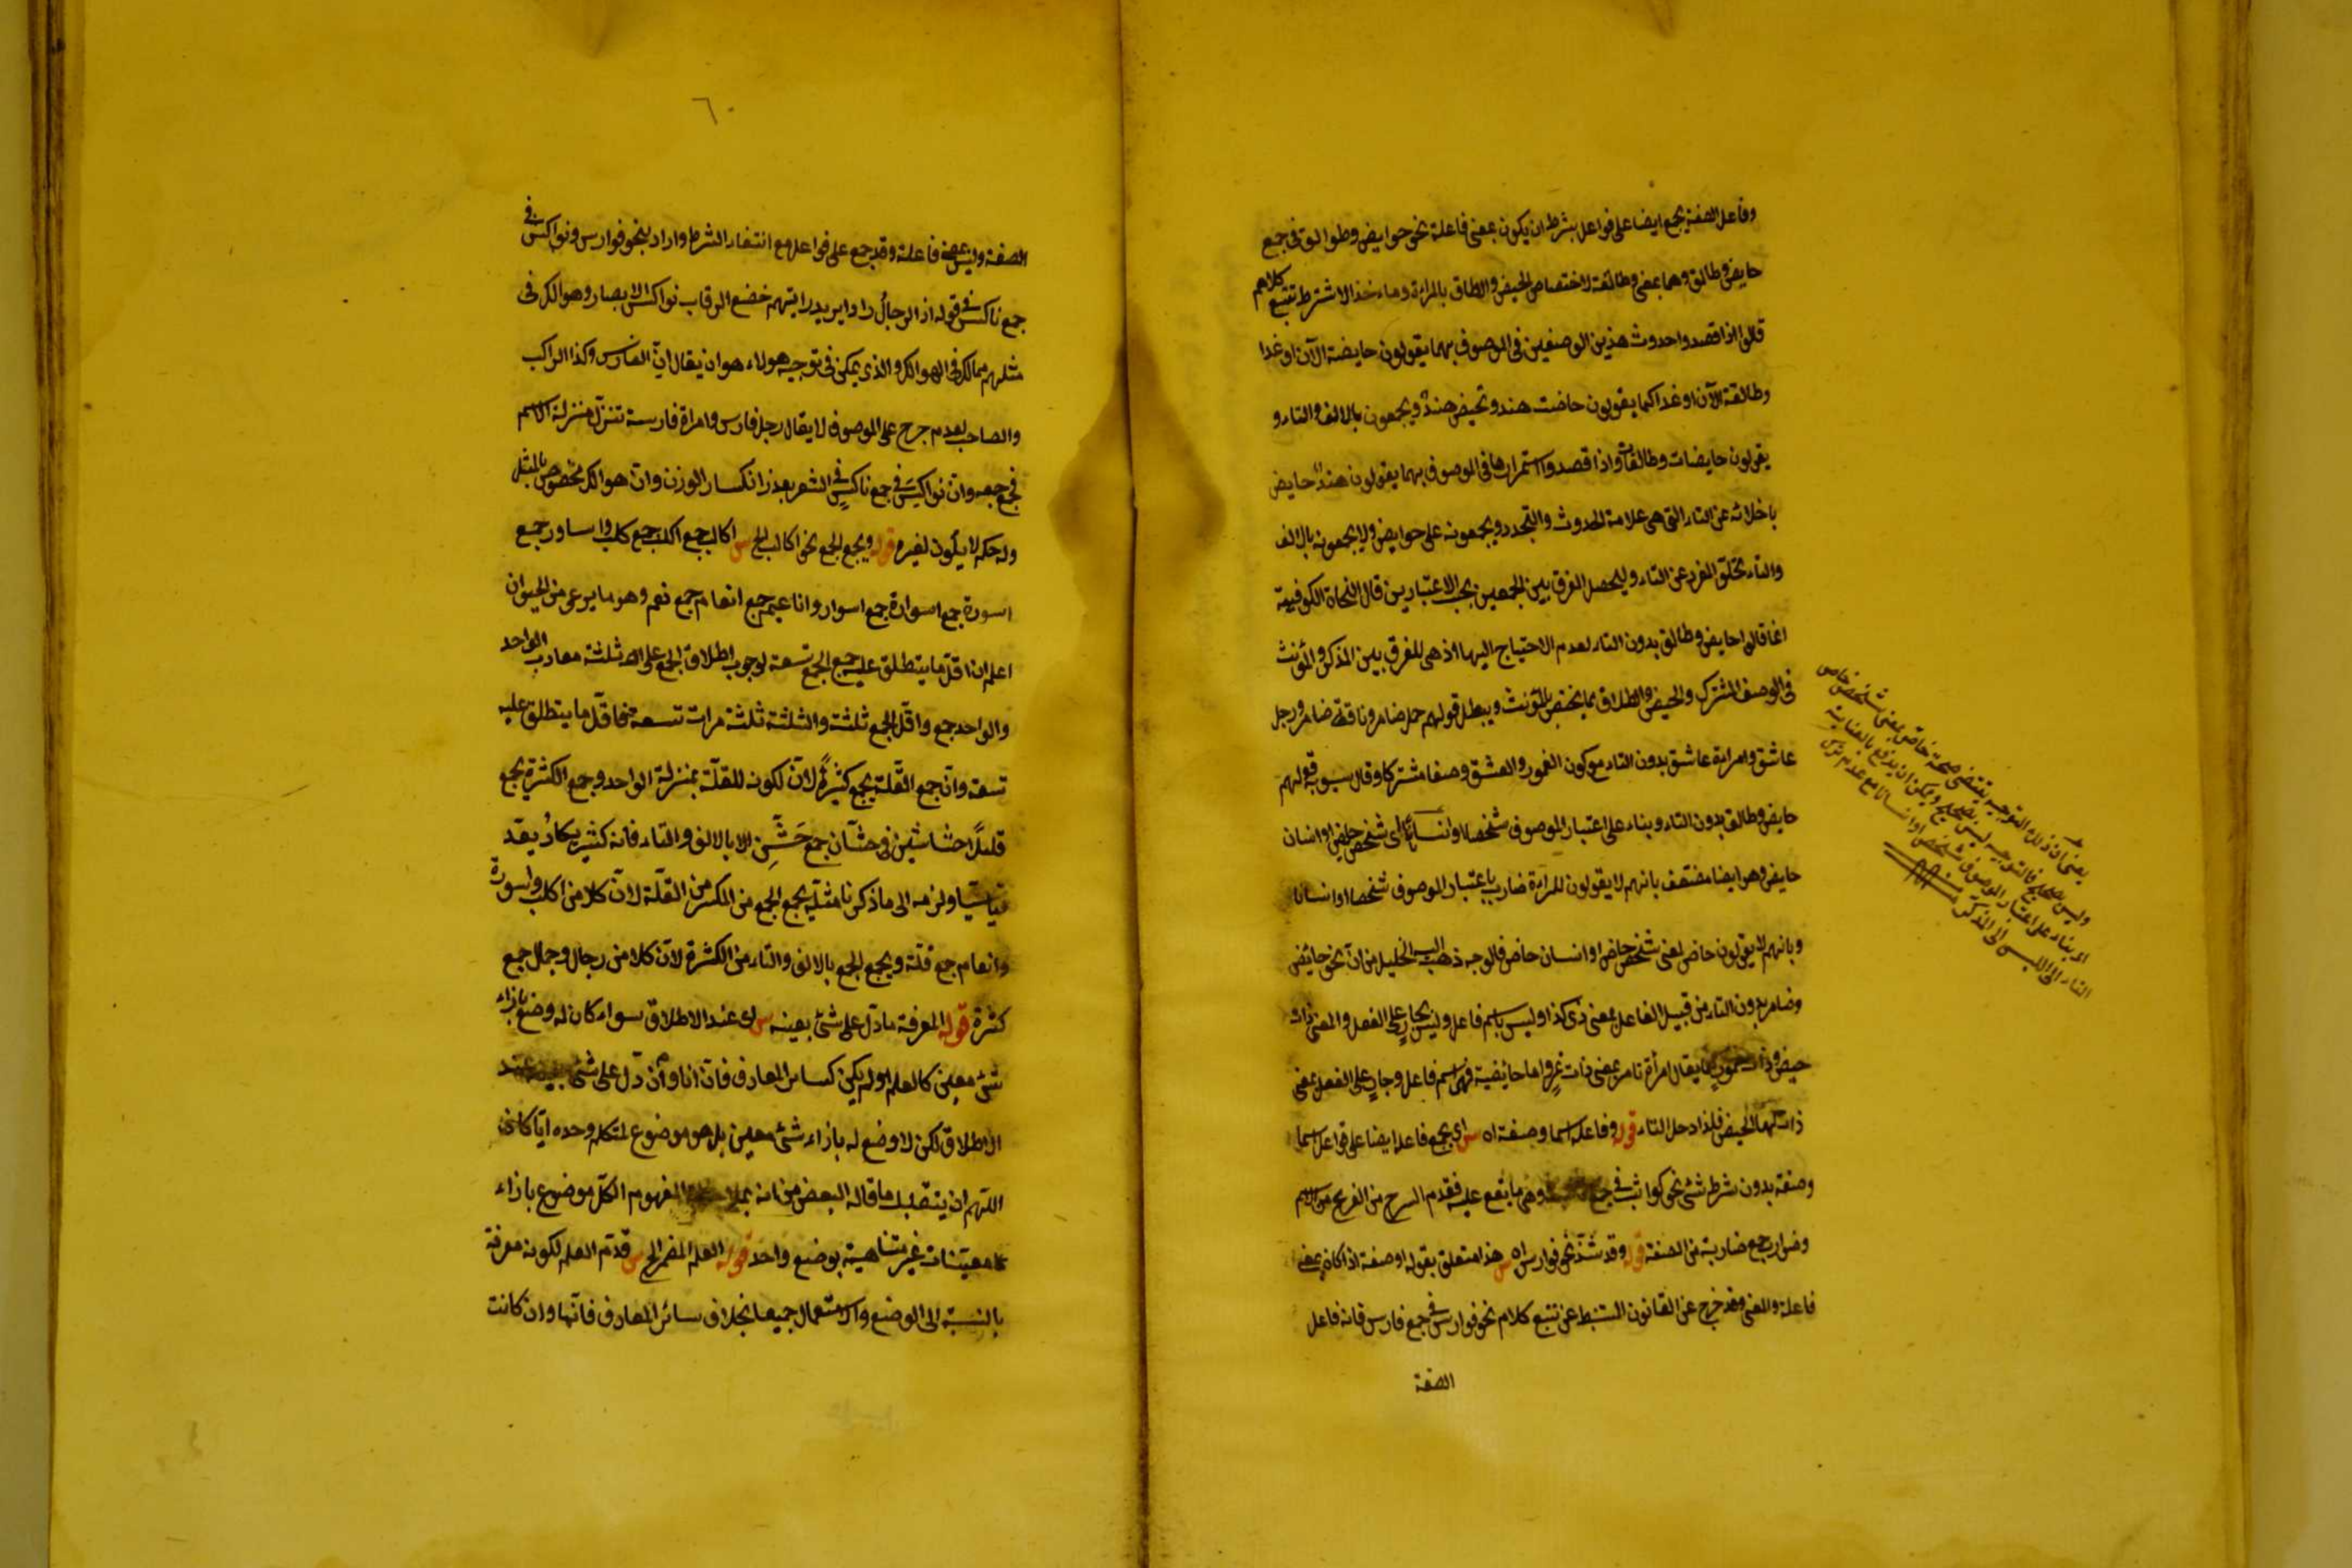 وفاعل الصفة يجمع ايضا على فواعل بشرط ان يكون بمعنى فاعلة نحو حوايض وطوالق فى جمع
حايض وطالق وهما بمعنى وطالقة لاختصاص الحيض والطلاق بالمراة وماخذ الاشتراط تتبع كلامهم
قالوا اذا قصدوا حدوث هذين الوصفين فى الموصوف بهما يقولون حايضة الآن او غدا
وطالقة الآن او غدا كما يقولون حاضت هند وتحيض هند ويجمعون بالالف والتاء و
يقولون حايضات وطالقات واذا قصدوا استمرارها فى الموصوف بهما يقولون هند حايض
باخلائه عن التاء التى هى علامة الحدوث والتجدد ويجمعونه على حوايض ولا يجمعونه بالالف
والتاء لخلو المفرد عن التاء وليحصل الفرق بين الجمعين بحسب الاعتبارين قال النحاة الكوفية
انما قالوا حايض وطالق بدون التاء لعدم الاحتياج اليها اذ هى للفرق بين المذكر والمؤنث
فى الوصف المشترك والحيض والطلاق مما يختص بالمؤنث ويبطل قولهم جمل ضامر وناقة ضامر ورجل
عاشق وامراة عاشق بدون التاء مع كون الضمور والعشق وصفا مشتركا وقال سيبويه قولهم
حايض وطالق بدون التاء وبناء على اعتبار الموصوف شخصا او انسانا اى شخص حايض او انسان
حايض وهو ايضا منتقض بانهم لا يقولون للمراة ضارب باعتبار الموصوف شخصا او انسانا
وبانهم لا يقولون حاض لعنى شخص حاض او انسان حاض فالوجه ذهب اليه الخليل من ان نحو حائض
وضامر بدون التاء من قبيل الفاعل بمعنى ذى كذا وليس باسم فاعل وليس بجار على الفعل والمعنى ذات
حيض وذات ضمور كما يقال امرأة تامر بمعنى ذات تمر واما حائضة فهى اسم فاعل وجار على الفعل بمعنى
ذات لها الحيض فلذا دخل التاء قوله وفاعل اسما وصفة اه س اى يجمع فاعل ايضا على فواعل اسما
وصفة بدون شرط شئ نحو كواثب فى جمع وهى ما يقع عليه مقدم السرج من الفرس من الاسم
وضوارب جمع ضاربة من الصفة قوله وقد شذ نحو فوارس اه س هذا متعلق بقوله او صفة اذا كان بمعنى
فاعلة والمعنى وقد خرج عن القانون المستنبط عن تتبع كلام نحو فوارس فى جمع فارس فانه فاعل
الصفة
يعنى ان ذلك التوجيه يقتضى صحة حاض بمعنى شخص حاض
وليس بصحيح فالتوجيه ليس بصحيح ويمكن ان يدفع بالعناية
اى بناء على اعتبار الموصوف شخصا او انسانا مع عدم ترك
التاء الى اللبس الى المذكر منه
٦٠
الصفة وليس بمعنى فاعلة وقد جمع على فواعل مع انتفاء الشرط واراد بنحو فوارس ونواكس فى
جمع ناكس فى قوله اذ الرجال راوا يزيد رايتهم خضع الرقاب نواكس الابصار وهوالك فى
مثلهم هالك فى الهوالك والذى يمكن فى توجيه هولاء هو ان يقال ان الفارس وكذا الراكب
والصاحب لعدم جرى على الموصوف لا يقال رجل فارس وامراة فارسة تنزل منزلة الاسم
فجمع جمعه وان نواكس فى جمع ناكس فى الشعر بعذر انكسار الوزن وان هوالك مخصوص بالمثل
وله حكم لا يكون لغيره قوله ويجمع الجمع نحو اكالب الخ س اكالب جمع اكلب جمع كلب واساور جمع
اسورة جمع اسوارة جمع اسوار واناعيم جمع انعام جمع نعم وهو ما يرعى من الحيوان
اعلم ان اقل ما ينطلق عليه جمع الجمع تسعة لوجوب اطلاق الجمع على ثلثة معاديب الواحد
والواحد جمع واقل الجمع ثلثة والثلثة ثلثة مرات تسعة فاقل ما ينطلق عليه
تسعة وان جمع القلة يجمع كثيرا لان لكونه للقلة بمنزلة الواحد وجمع الكثرة يجمع
قليلا حشاشين فى حشان جمع حش الا بالالف والتاء فانه كثير يكاد يعد
قياسيا ولزمه الى ما ذكرنا مثلية يجمع الجمع من المكسر من القلة لان كلا من اكلب واسورة
وانعام جمع قلة ويجمع الجمع بالالف والتاء من الكثرة لان كلا من رجال وجمال جمع
كثرة قوله المعرفة ما دل على شئ بعينه س اى عند الاطلاق سواء كان له وضع بازاء
شئ معين كالعلم او لم يكن كسائر المعارف فان انا وان دل على شئ بعينه عند
الاطلاق لكن لا وضع له بازاء شئ معين بل هو موضوع لمتكلم وحده ايا كان
اللهم ان يتقبل ما قاله البعض من انه بملاحظة المفهوم الكل موضوع بازاء
معينات غير متناهية بوضع واحد قوله العلم المضمر الخ س قدم العلم لكونه معرفة
بالنسبة الى الوضع والاستعمال جميعا بخلاف سائر المعارف فانها وان كانت